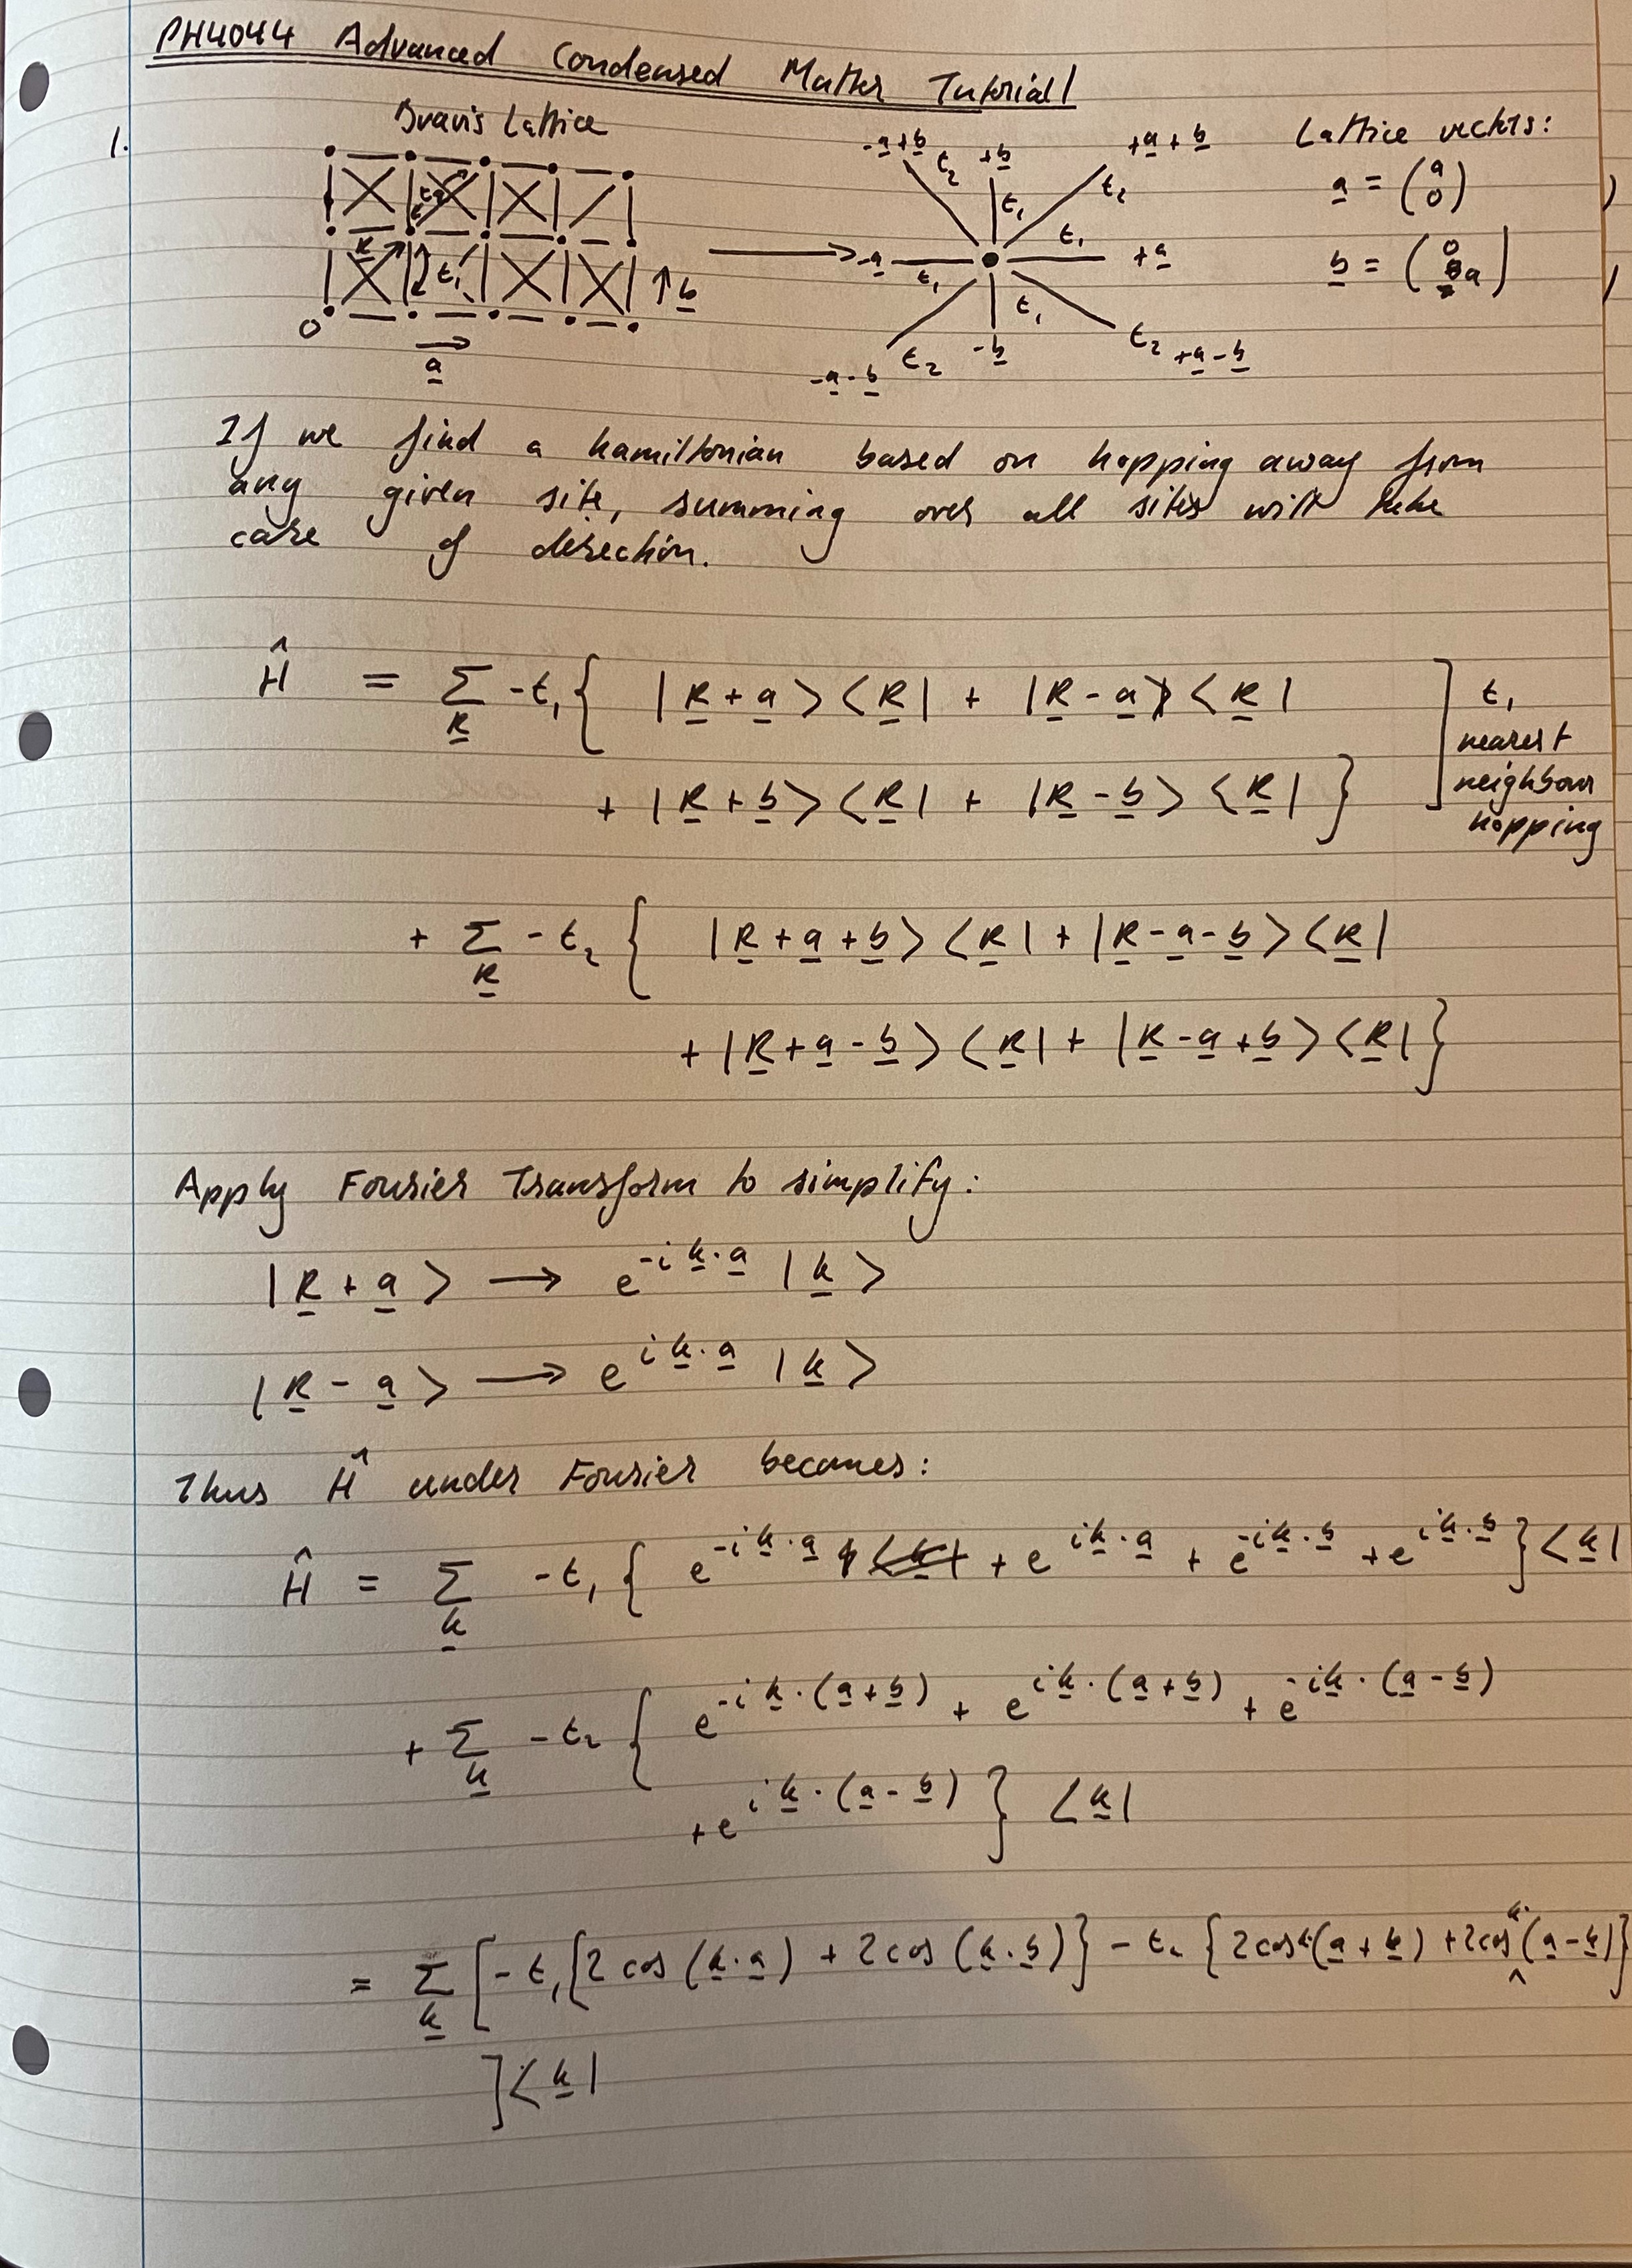 PH4044 Advanced Condensed Matter Tutorial 1
1.
Bravis Lattice
Lattice vectors:
-a+b t₂ +b +a+b
t₁ t₂
a = (a 0) ,
t₂
R t₁ b
-a t₁ t₁ +a
b = (0 a) ,
O a
t₁
-a-b t₂ -b t₂ +a-b
If we find a hamiltonian based on hopping away from
any given site, summing over all sites will take
care of direction.
Ĥ = Σ_R -t₁{ |R+a><R| + |R-a><R|
+ |R+b><R| + |R-b><R| }
] t₁
nearest
neighbour
hopping
+ Σ_R -t₂ { |R+a+b><R| + |R-a-b><R|
+ |R+a-b><R| + |R-a+b><R| }
Apply Fourier Transform to simplify:
|R+a> → e^{-ik·a} |k>
|R-a> → e^{ik·a} |k>
Thus Ĥ under Fourier becomes:
Ĥ = Σ_k -t₁ { e^{-ik·a} + e^{ik·a} + e^{-ik·b} + e^{ik·b} } <k|
+ Σ_k -t₂ { e^{-ik·(a+b)} + e^{ik·(a+b)} + e^{-ik·(a-b)}
+ e^{ik·(a-b)} } <k|
= Σ_k [ -t₁{2cos(k·a) + 2cos(k·b)} - t₂ {2cos k·(a+b) + 2cos k·(a-b)}
] <k|